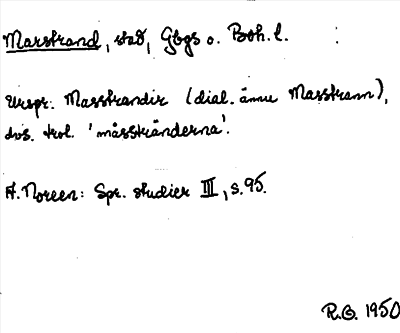 Marstrand, stad, Gbgs o. Boh. l.
Urspr. Masstrandir (dial. ännu Masstrann),
dvs. trol. 'måsstränderna'.
A. Noreen: Spr. studier III, s. 95.
R.G. 1950